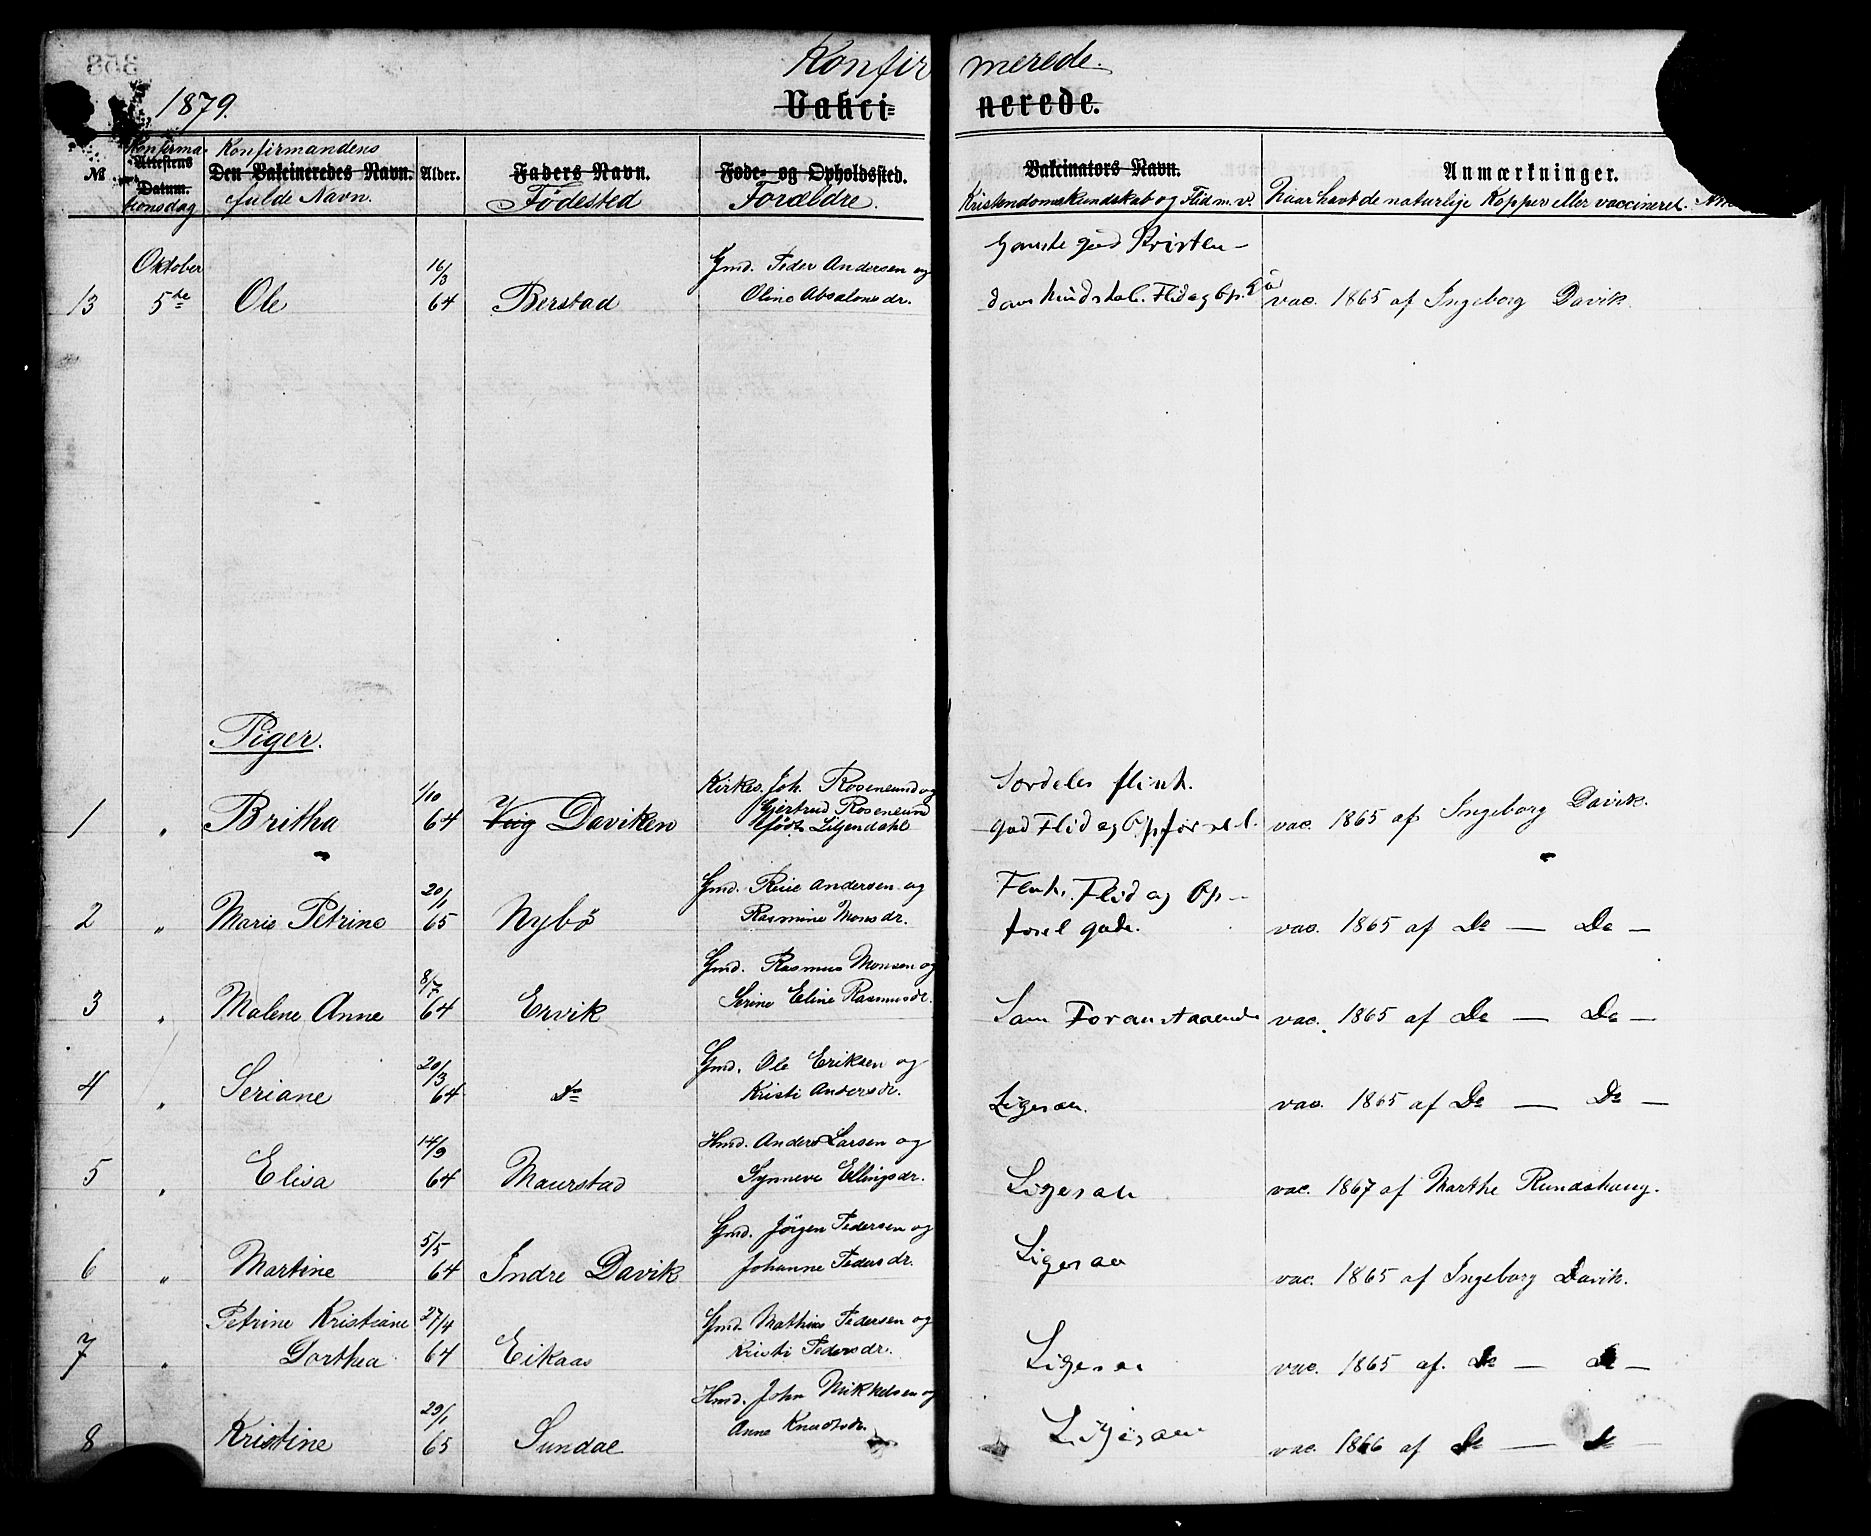 Konfirmerede.
1879.
Vakcinerede.
№ Konfirma- Attestens Datum. tionsdag Konfirmandens Den Vakcineredes Navn. fulde Navn. Alder. Faders Navn. Fødested Føde- og Opholdssted. Forældre. Vakcinators Navn. Kristendomskundskab og Flid m. v. Anmærkninger. Naar havt de naturlige Kopper eller vaccineret.
Oktober 16/3 Gmd. Peder Andersen og Ganske god Kristen-
13 5te Ole 64 Berstad Oline Absalonsdr. domskundskab. Flid og Op. god vac. 1865 af Ingeborg Davik.
Piger.
1/10 Kirkes. Joh. Rosenlund og Særdeles flink.
1 " Britha 64 Vaag Daviken Gjertrud Rosenlund god Flid og Opførsel. vac. 1865 af Ingeborg Davik.
født Liljendahl
20/1 Gmd. Andersen og Flink. Flid og Op-
2 " Marie Petrine 65 Nybö Rasmine Monsdr. førsel gode. vac. 1865 af Do — Do —
8/7 Gmd. Rasmus Monsen og
3 " Malene Anne 64 Ervik Serine Eline Rasmusdr. Som Foranstaaende vac. 1865 af Do — Do —
20/3 Gmd. Ole Eriksen og
4 " Seriane 64 Do Kristi Andersdr. Ligesaa. vac. 1865 af Do — Do —
14/9 Hmd. Anders Larsen og
5 " Elisa 64 Maurstad Synneve Ellingsdr. Ligesaa vac. 1867 af Marthe Rundshaug.
5/5 Gmd. Jörgen Pedersen og
6 " Martine 64 Indre Davik Johanne Pedersdr. Ligesaa vac. 1865 af Ingeborg Davik.
Petrine Kristiane 27/4 Gmd. Mathias Pedersen og
7 " Dorthea 64 Eikaas Kristi Pedersdr. Ligesaa vac. 1865 af. Do — Do —
29/1 Hmd. John Mikkelsen og
8 Kristine 65 Sundal Anne Knudsdr. Ligesaa vac. 1866 af Do — Do —